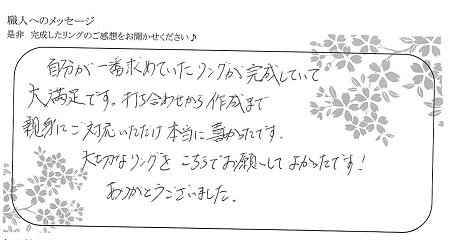 職人へのメッセージ
是非 完成したリングのご感想をお聞かせください♪
自分が一番求めていたリングが完成していて
大満足です。打ち合わせから作成まで
親身にご対応いただけ本当に喜かったです。
大切なリングを こちらでお願いしてよかったです!
ありがとうございました。